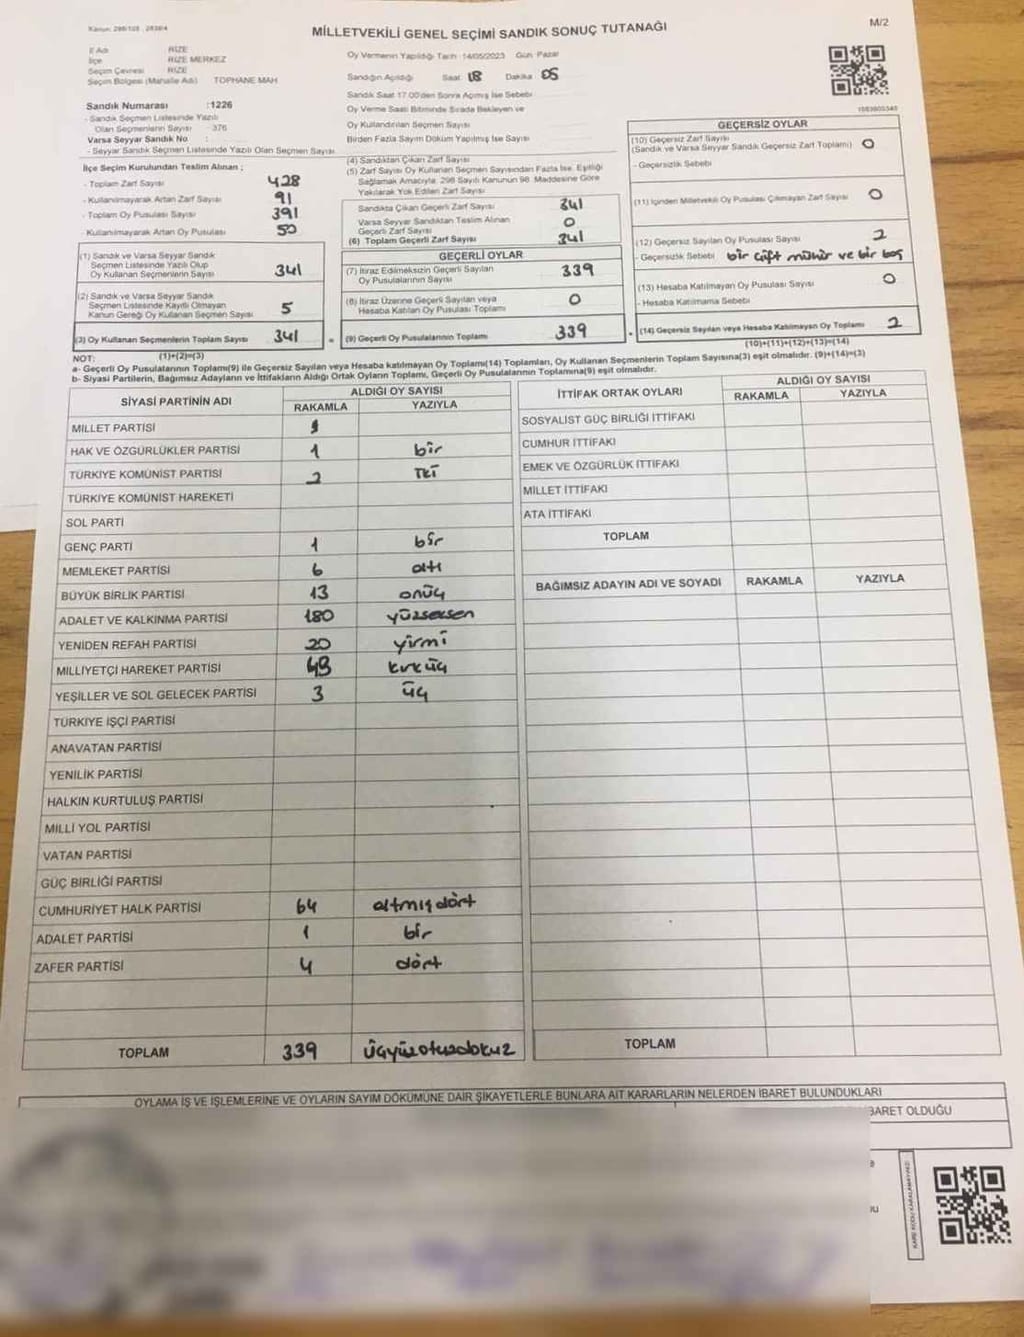 MİLLETVEKİLİ GENEL SEÇİMİ SANDIK SONUÇ TUTANAĞI
M/2
İl Adı RİZE
İlçe RİZE MERKEZ
Seçim Çevresi RİZE
Seçim Bölgesi (Mahalle Adı) TOPHANE MAH
Sandık Numarası :1226
- Sandık Seçmen Listesinde Yazılı
Olan Seçmenlerin Sayısı : 376
Varsa Seyyar Sandık No :
- Seyyar Sandık Seçmen Listesinde Yazılı Olan Seçmen Sayısı
İlçe Seçim Kurulundan Teslim Alınan ;
- Toplam Zarf Sayısı 428
- Kullanılmayarak Artan Zarf Sayısı 91
- Toplam Oy Pusulası Sayısı 391
- Kullanılmayarak Artan Oy Pusulası 50
(1) Sandık ve Varsa Seyyar Sandık
Seçmen Listesinde Yazılı Olup
Oy Kullanan Seçmenlerin Sayısı 341
(2) Sandık ve Varsa Seyyar Sandık
Seçmen Listesinde Kayıtlı Olmayan
Kanun Gereği Oy Kullanan Seçmen Sayısı 5
(3) Oy Kullanan Seçmenlerin Toplam Sayısı 341
(1)+(2)=(3)
Oy Vermenin Yapıldığı Tarih :14/05/2023 Gün: Pazar
Sandığın Açıldığı Saat 18 Dakika 05
Sandık Saat 17.00'den Sonra Açılmış İse Sebebi
Oy Verme Saati Bitiminde Sırada Bekleyen ve
Oy Kullandırılan Seçmen Sayısı
Birden Fazla Sayım Döküm Yapılmış İse Sayısı
(4) Sandıktan Çıkan Zarf Sayısı
(5) Zarf Sayısı Oy Kullanan Seçmen Sayısından Fazla İse, Eşitliği
Sağlamak Amacıyla, 298 Sayılı Kanunun 98. Maddesine Göre
Yakılarak Yok Edilen Zarf Sayısı
Sandıkta Çıkan Geçerli Zarf Sayısı 341
Varsa Seyyar Sandıktan Teslim Alınan
Geçerli Zarf Sayısı 0
(6) Toplam Geçerli Zarf Sayısı 341
GEÇERLİ OYLAR
(7) İtiraz Edilmeksizin Geçerli Sayılan
Oy Pusulalarının Sayısı 339
(8) İtiraz Üzerine Geçerli Sayılan veya
Hesaba Katılan Oy Pusulası Toplamı 0
(9) Geçerli Oy Pusulalarının Toplamı 339
GEÇERSİZ OYLAR
(10) Geçersiz Zarf Sayısı
(Sandık ve Varsa Seyyar Sandık Geçersiz Zarf Toplamı) 0
- Geçersizlik Sebebi
(11) İçinden Milletvekili Oy Pusulası Çıkmayan Zarf Sayısı 0
(12) Geçersiz Sayılan Oy Pusulası Sayısı 2
- Geçersizlik Sebebi bir çift mühür ve bir boş
(13) Hesaba Katılmayan Oy Pusulası Sayısı 0
- Hesaba Katılmama Sebebi
(14) Geçersiz Sayılan veya Hesaba Katılmayan Oy Toplamı 2
(10)+(11)+(12)+(13)=(14)
NOT:
a- Geçerli Oy Pusulalarının Toplamı(9) ile Geçersiz Sayılan veya Hesaba katılmayan Oy Toplamı(14) Toplamları, Oy Kullanan Seçmenlerin Toplam Sayısına(3) eşit olmalıdır. (9)+(14)=(3)
b- Siyasi Partilerin, Bağımsız Adayların ve İttifakların Aldığı Ortak Oyların Toplamı, Geçerli Oy Pusulalarının Toplamına(9) eşit olmalıdır.
SİYASİ PARTİNİN ADI ALDIĞI OY SAYISI
RAKAMLA YAZIYLA
MİLLET PARTİSİ
HAK VE ÖZGÜRLÜKLER PARTİSİ 1 bir
TÜRKİYE KOMÜNİST PARTİSİ 2 İki
TÜRKİYE KOMÜNİST HAREKETİ
SOL PARTİ
GENÇ PARTİ 1 bir
MEMLEKET PARTİSİ 6 altı
BÜYÜK BİRLİK PARTİSİ 13 onüç
ADALET VE KALKINMA PARTİSİ 180 yüzseksen
YENİDEN REFAH PARTİSİ 20 yirmi
MİLLİYETÇİ HAREKET PARTİSİ 43 kırküç
YEŞİLLER VE SOL GELECEK PARTİSİ 3 üç
TÜRKİYE İŞÇİ PARTİSİ
ANAVATAN PARTİSİ
YENİLİK PARTİSİ
HALKIN KURTULUŞ PARTİSİ
MİLLİ YOL PARTİSİ
VATAN PARTİSİ
GÜÇ BİRLİĞİ PARTİSİ
CUMHURİYET HALK PARTİSİ 64 altmışdört
ADALET PARTİSİ 1 bir
ZAFER PARTİSİ 4 dört
TOPLAM 339 üçyüzotuzdokuz
İTTİFAK ORTAK OYLARI ALDIĞI OY SAYISI
RAKAMLA YAZIYLA
SOSYALİST GÜÇ BİRLİĞİ İTTİFAKI
CUMHUR İTTİFAKI
EMEK VE ÖZGÜRLÜK İTTİFAKI
MİLLET İTTİFAKI
ATA İTTİFAKI
TOPLAM
BAĞIMSIZ ADAYIN ADI VE SOYADI RAKAMLA YAZIYLA
TOPLAM
OYLAMA İŞ VE İŞLEMLERİNE VE OYLARIN SAYIM DÖKÜMÜNE DAİR ŞİKAYETLERLE BUNLARA AİT KARARLARIN NELERDEN İBARET BULUNDUKLARI
BARET OLDUĞU